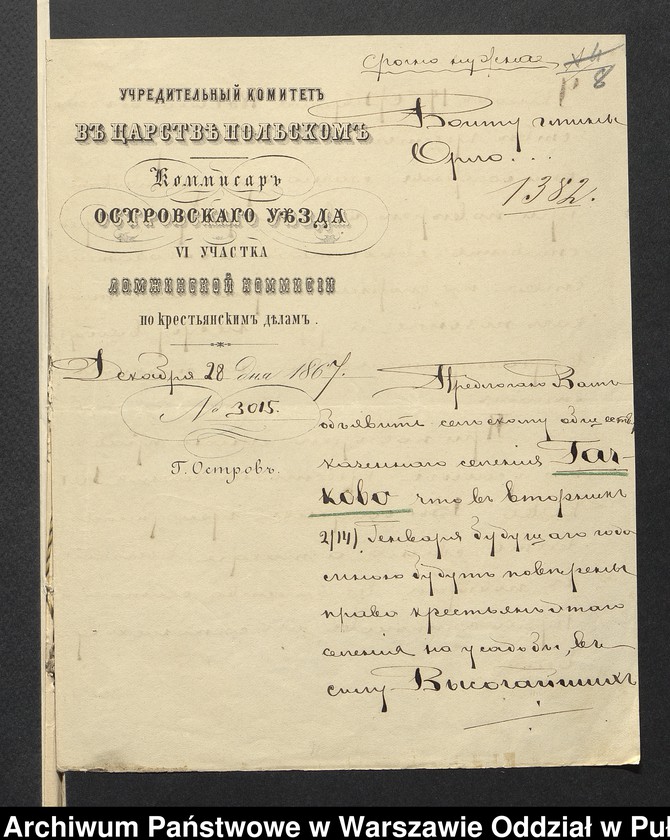 срочно нужное
8
Войту гмины
Орло...
1382.
УЧРЕДИТЕЛЬНЫЙ КОМИТЕТЪ
ВЪ ЦАРСТВѢ ПОЛЬСКОМЪ
Коммисаръ
ОСТРОВСКАГО УѢЗДА
VI УЧАСТКА
ЛОМЖИНСКОЙ КОММИСІИ
по крестьянскимъ дѣламъ.
Декабря 28 дня 1867.
№ 3015.
Г. Островъ.
Предлогаю Вамъ
объявить сельскому обществу
казеннаго селенія Гач-
ково что въ вторникъ
2/14) Генваря будущаго года
мною будутъ повѣрены
права крестьянъ этаго
селенія на усадьбы, въ
силу Высочайшихъ
Archiwum Państwowe w Warszawie Oddział w Pu